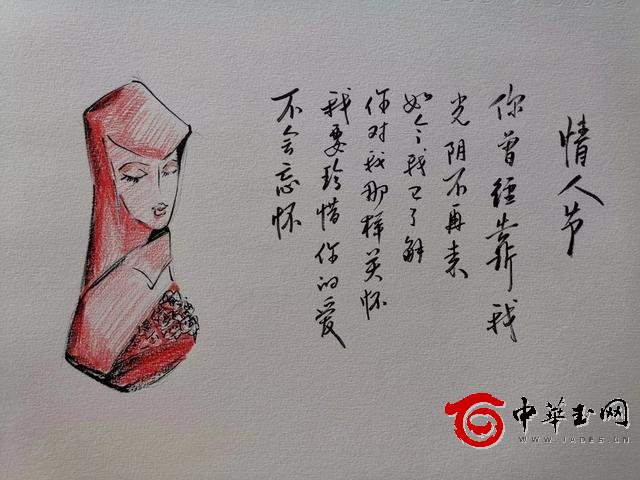 情人节
你曾经靠我
光阴不再来
如今我已了解
你对我那样关怀
我要珍惜你的爱
不会忘怀
中華玉网
WWW.JADES.CN